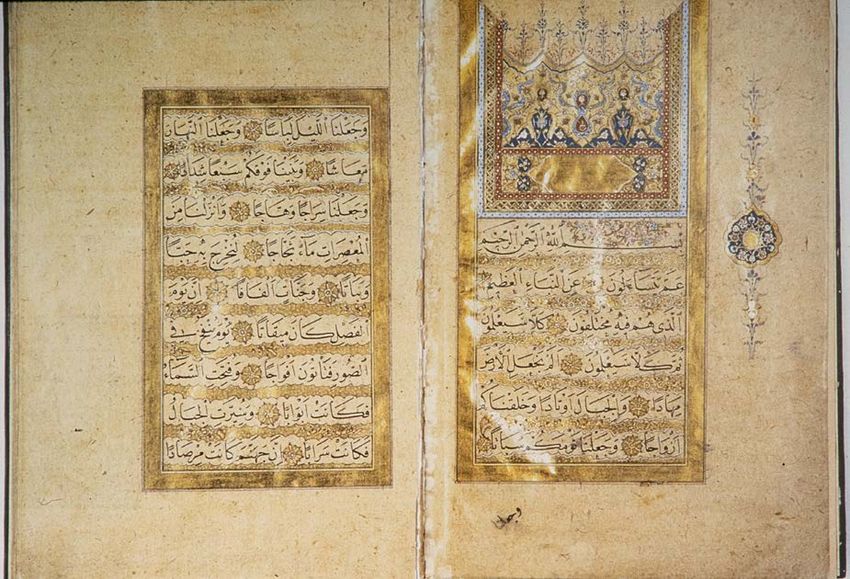 بسم الله الرحمن الرحيم
عم يتساءلون عن النباء العظيم
الذي هم فيه مختلفون كلا سيعلمون
ثم كلا سيعلمون الم نجعل الارض
مهادا والجبال اوتادا وخلقناكم
ازواجا وجعلنا نومكم سباتا
وجعلنا
وجعلنا الليل لباسا وجعلنا النهار
معاشا وبنينا فوقكم سبعا شدادا
وجعلنا سراجا وهاجا وانزلنا من
المعصرات ماء ثجاجا لنخرج به حبا
ونباتا وجنات الفافا ان يوم
الفصل كان ميقاتا يوم ينفخ في
الصور فتأتون افواجا وفتحت السماء
فكانت ابوابا وسيرت الجبال
فكانت سرابا ان جهنم كانت مرصادا